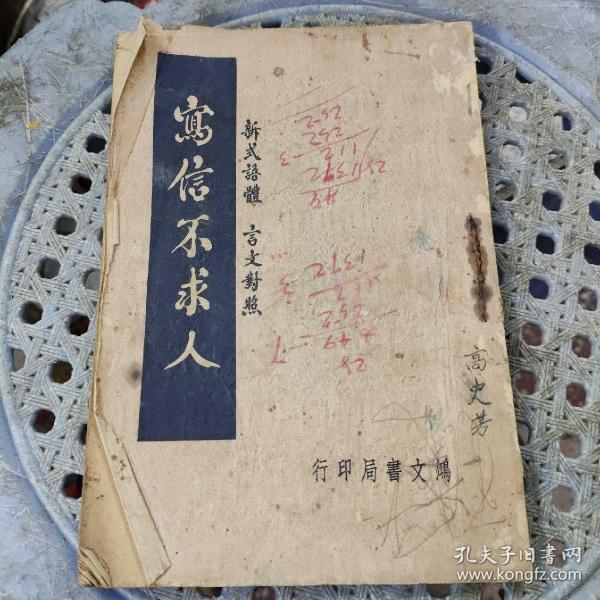 寫信不求人
新式語體 言文對照
高史芳
鴻文書局印行
孔夫子旧書网
www.kongfz.com